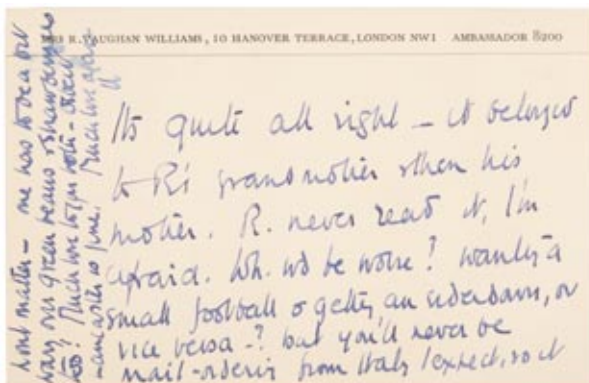 MRS R. VAUGHAN WILLIAMS, 10 HANOVER TERRACE, LONDON NW1 AMBASSADOR 8200
Its quite all right – it belonged
to R's grandmother & then his
mother. R. never read it, I'm
afraid. Wh. wd be worse? wanting a
small football & getting an eiderdown, or
vice versa –? but you'll never be
mail-ordering from Italy I expect, so it
wont matter – one has to wear out
green beans & strawberries
Much love to you both –
Much love